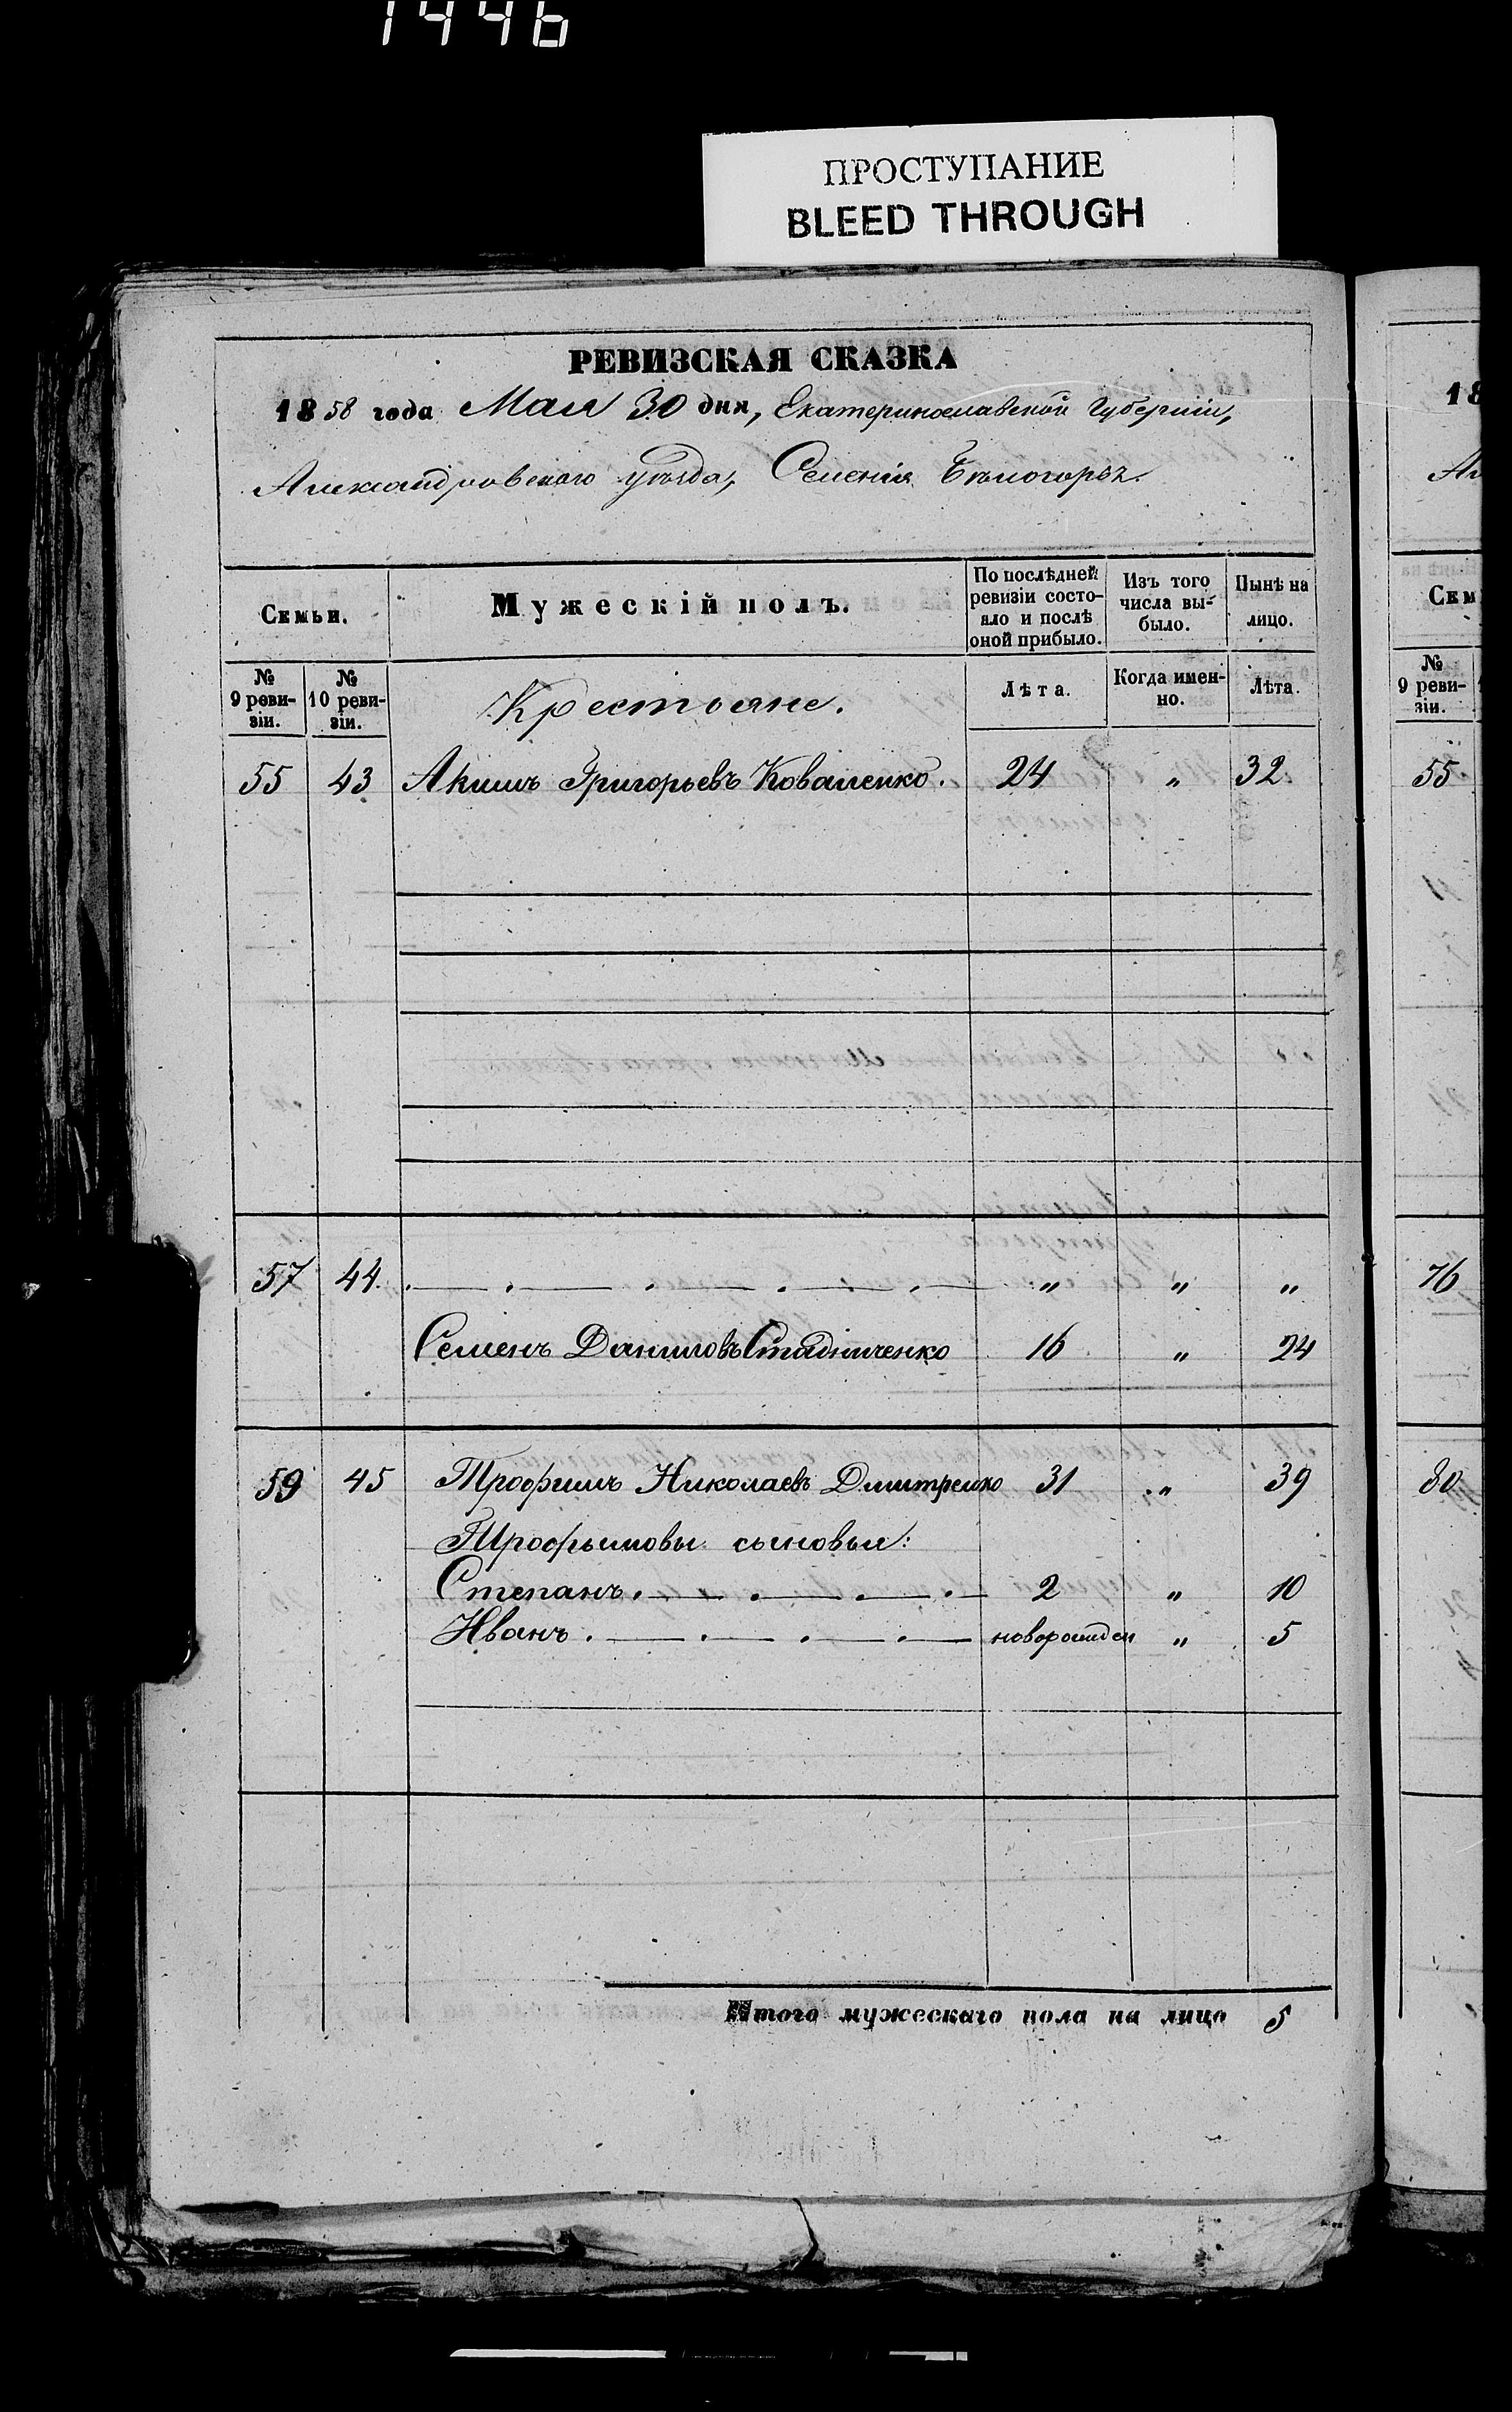 1446
ПРОСТУПАНИЕ
BLEED THROUGH
РЕВИЗСКАЯ СКАЗКА
1858 года Мая 30 дня, Екатеринославской Губерніи,
Александровскаго уѣзда, Селенія Бѣлогорья.
Семьи.
Мужескій полъ.
По послѣдней ревизіи состояло и послѣ оной прибыло.
Изъ того числа выбыло.
Нынѣ на лицо.
№ 9 ревизіи.
№ 10 ревизіи.
Крестьяне.
Лѣта.
Когда именно.
Лѣта.
55 43 Акимъ Григорьевъ Коваленко. 24 „ 32
57 44 „ „ „
Семенъ Даниловъ Стадниченко 16 „ 24
59 45 Трофимъ Николаевъ Дмитренко 31 „ 39
Трофимовы сыновья:
Степанъ. 2 „ 10
Иванъ. новорожден „ 5
Итого мужескаго пола на лицо 5
18
Ал
Сем
№ 9 ревизіи.
55
76
80